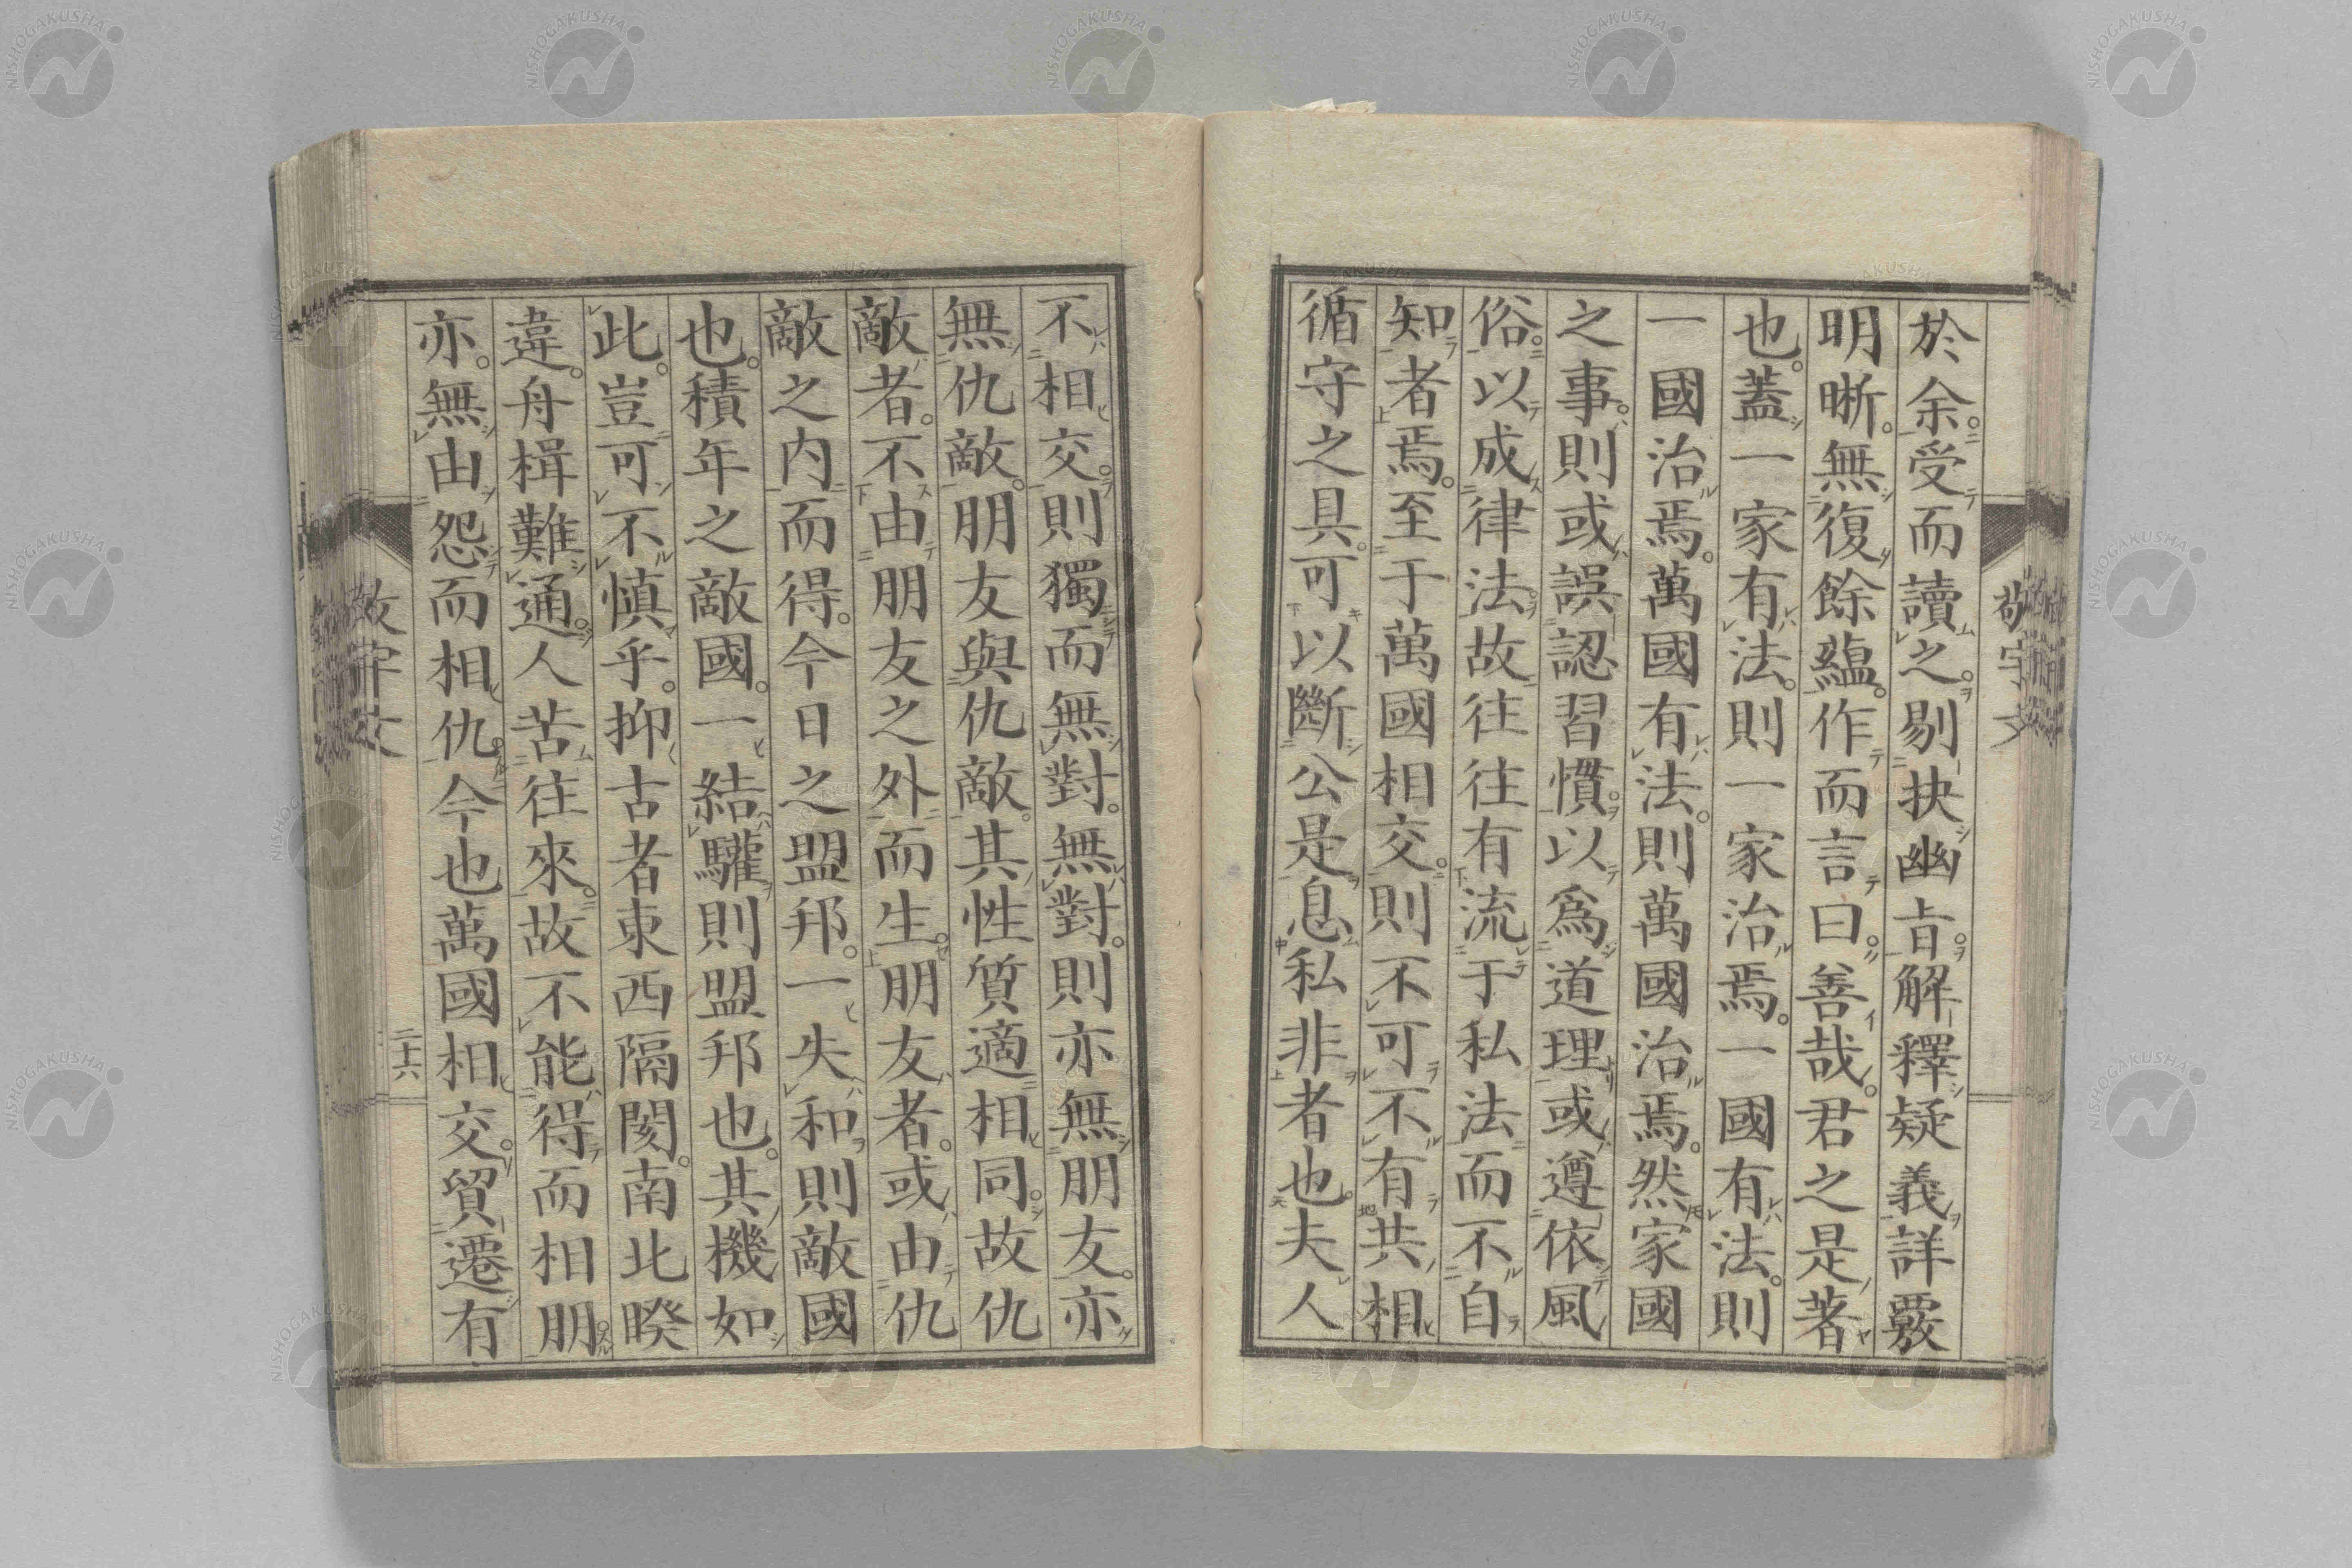 於余。受而讀之。剔抉幽㫖。解釋疑義詳覈
明晰。無復餘蘊。作而言曰。善哉。君之是著
也。蓋一家有法。則一家治焉。一國有法。則
一國治焉。萬國有法。則萬國治焉。然家國
之事。則或誤認習慣。以爲道理。或遵依風
俗。以成律法。故往往有流于私法而不自
知者焉。至于萬國相交。則不可不有共相
循守之具。可以斷公是息私非者也。夫人
不相交。則獨而無對。無對。則亦無朋友。亦
無仇敵。朋友與仇敵。其性質適相同。故仇
敵者。不由朋友之外而生。朋友者。或由仇
敵之内而得。今日之盟邦。一失和則敵國
也。積年之敵國。一結驩則盟邦也。其機如
此。豈可不慎乎。抑古者東西隔閡。南北睽
違。舟楫難通。人苦往來。故不能得而相朋
亦。無由怨而相仇。今也萬國相交。貿遷有
敬宇文
二十六